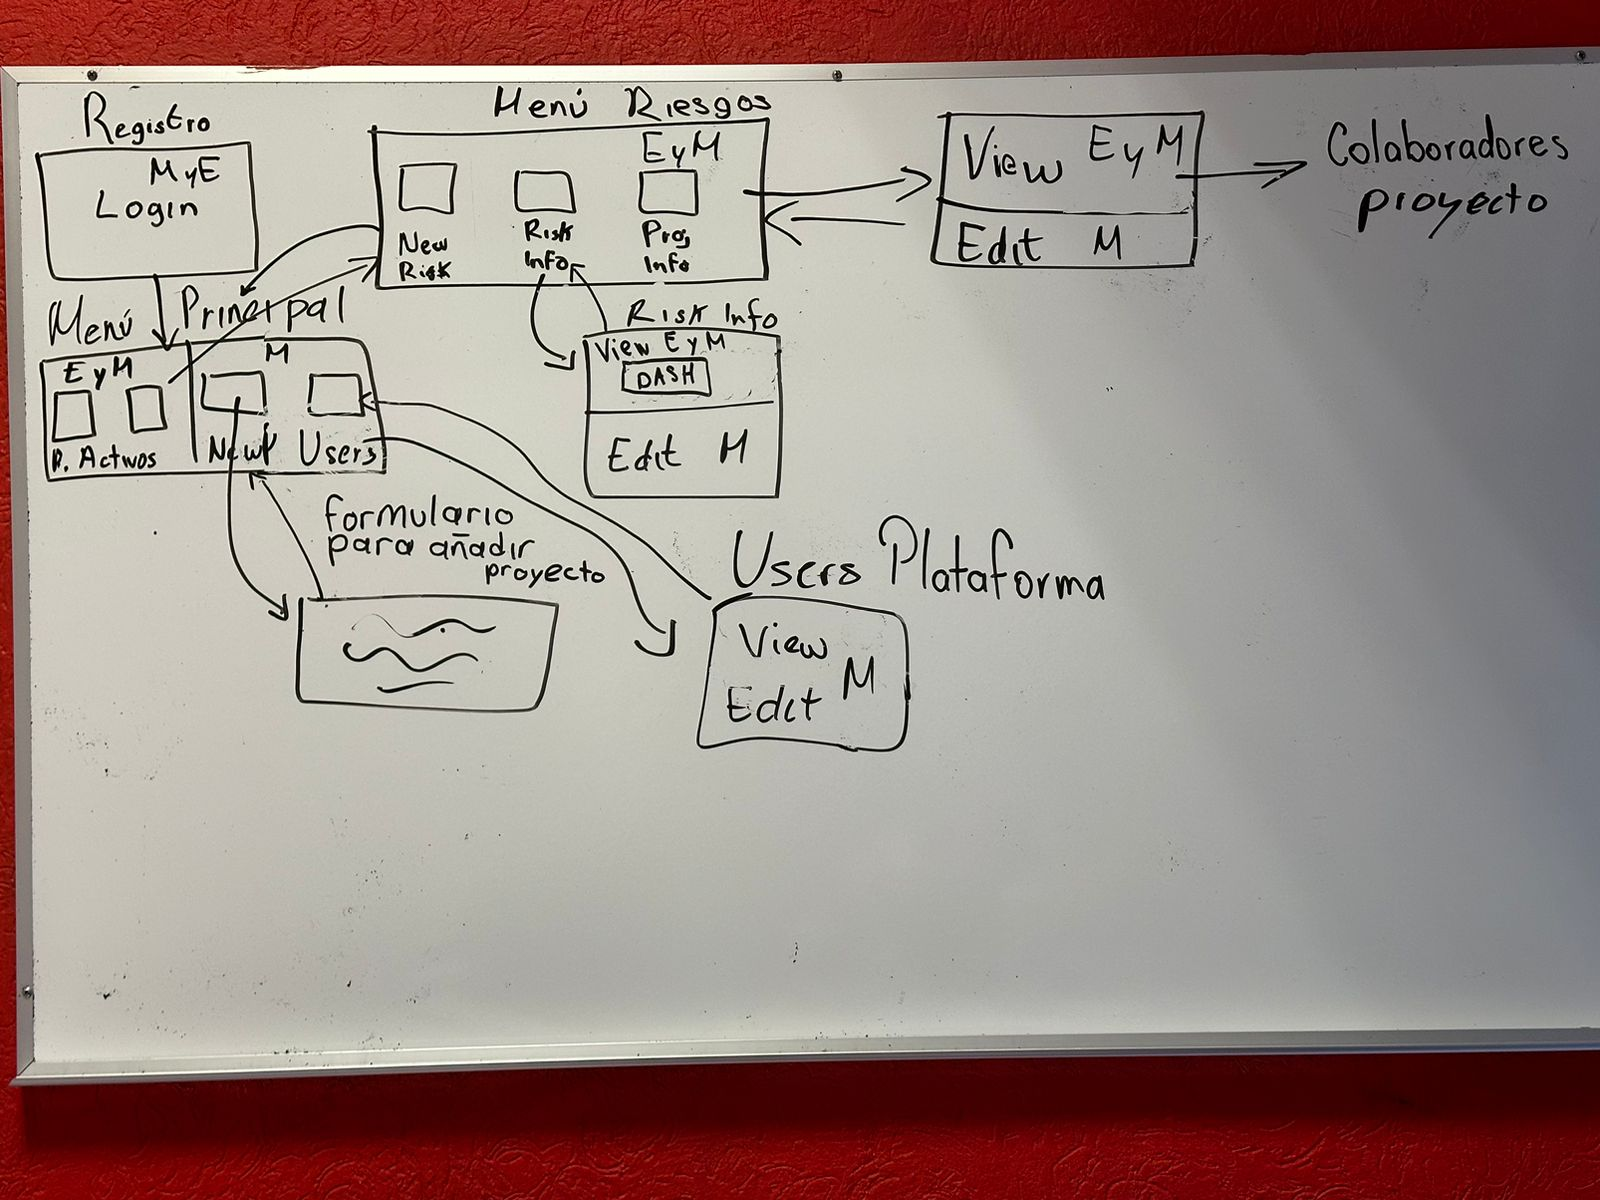 Registro
MyE
Login
Menú Riesgos
EyM
New
Risk
Risk
Info
Proj
Info
View EyM
Edit M
Colaboradores
proyecto
Menú Principal
EyM
M
P. Activos
NewP
Users
Risk Info
View EyM
DASH
Edit M
formulario
para añadir
proyecto
Users Plataforma
View
M
Edit